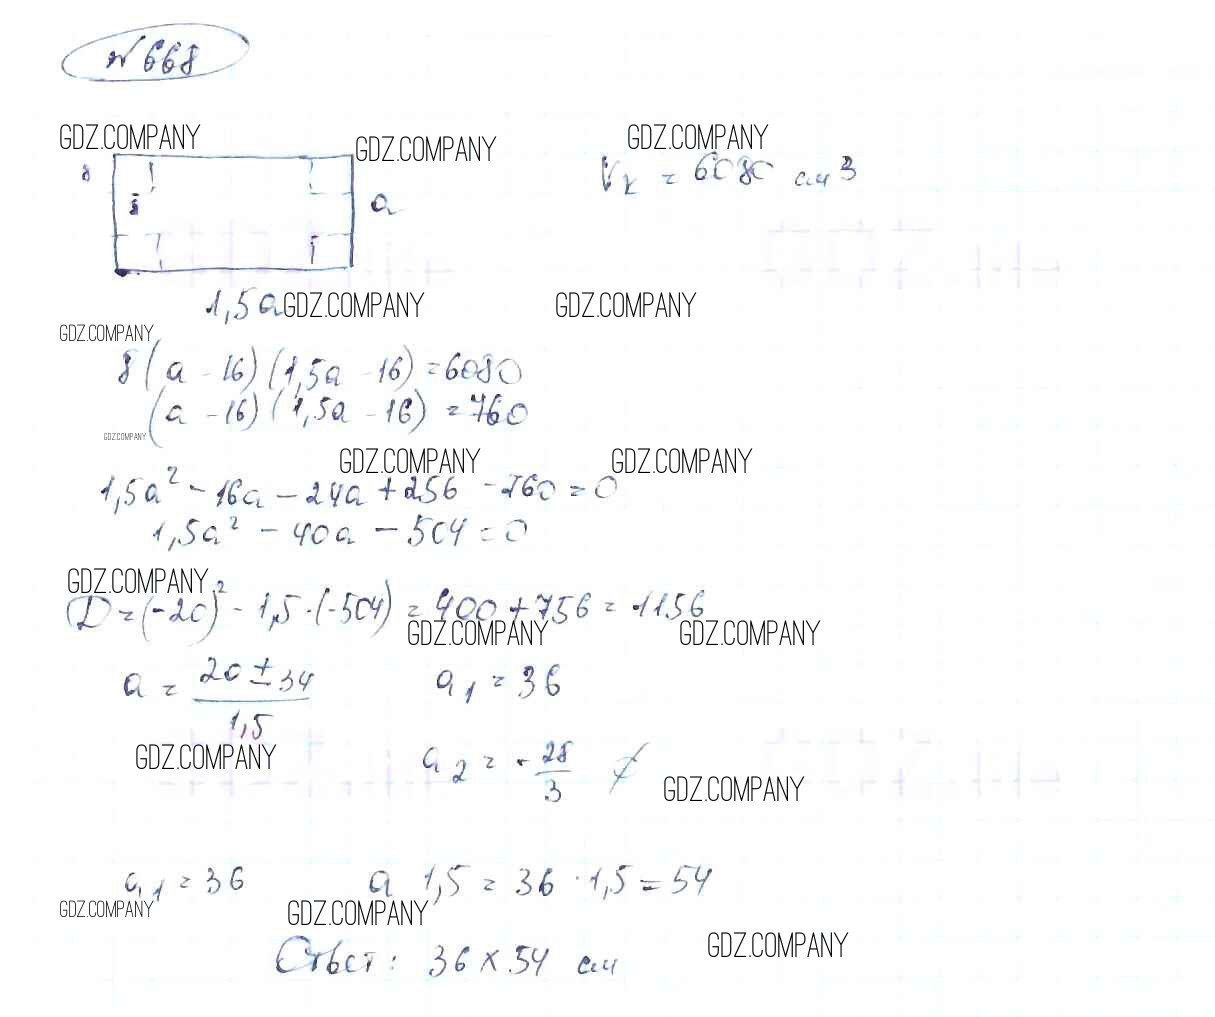 № 668
GDZ.COMPANY GDZ.COMPANY GDZ.COMPANY
8 a Vк = 6080 см3
1,5a GDZ.COMPANY GDZ.COMPANY
GDZ.COMPANY
8(a - 16)(1,5a - 16) = 6080
(a - 16)(1,5a - 16) = 760
GDZ.COMPANY
GDZ.COMPANY GDZ.COMPANY
1,5a² - 16a - 24a + 256 - 760 = 0
1,5a² - 40a - 504 = 0
GDZ.COMPANY
D = (-20)² - 1,5·(-504) = 400 + 756 = 1156
GDZ.COMPANY GDZ.COMPANY
a = (20 ± 34)/1,5 a₁ = 36
GDZ.COMPANY a₂ = -28/3
GDZ.COMPANY
a₁ = 36 a 1,5 = 36 · 1,5 = 54
GDZ.COMPANY GDZ.COMPANY
GDZ.COMPANY
Ответ: 36 × 54 см